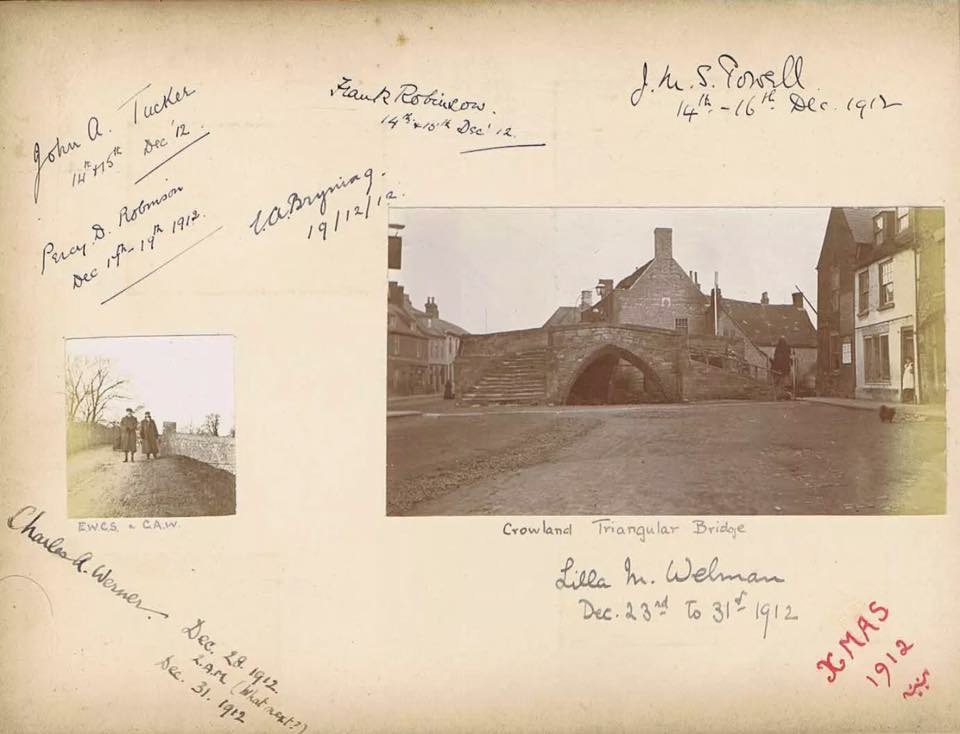 John A. Tucker
14th & 15th Dec '12.
Frank Robinson.
14th & 15th Dec' 12.
J. M. S. Powell
14th - 16th Dec. 1912
Percy. D. Robinson
Dec 17th - 19th 1912.
Bryning.
19/12/12.
E.W.C.S. & C.A.W.
Crowland Triangular Bridge
Charles A. Werner.
Dec. 28. 1912.
2. A.M. (What next?)
Dec. 31. 1912
Lilla M. Welman
Dec. 23rd to 31st 1912
XMAS
1912